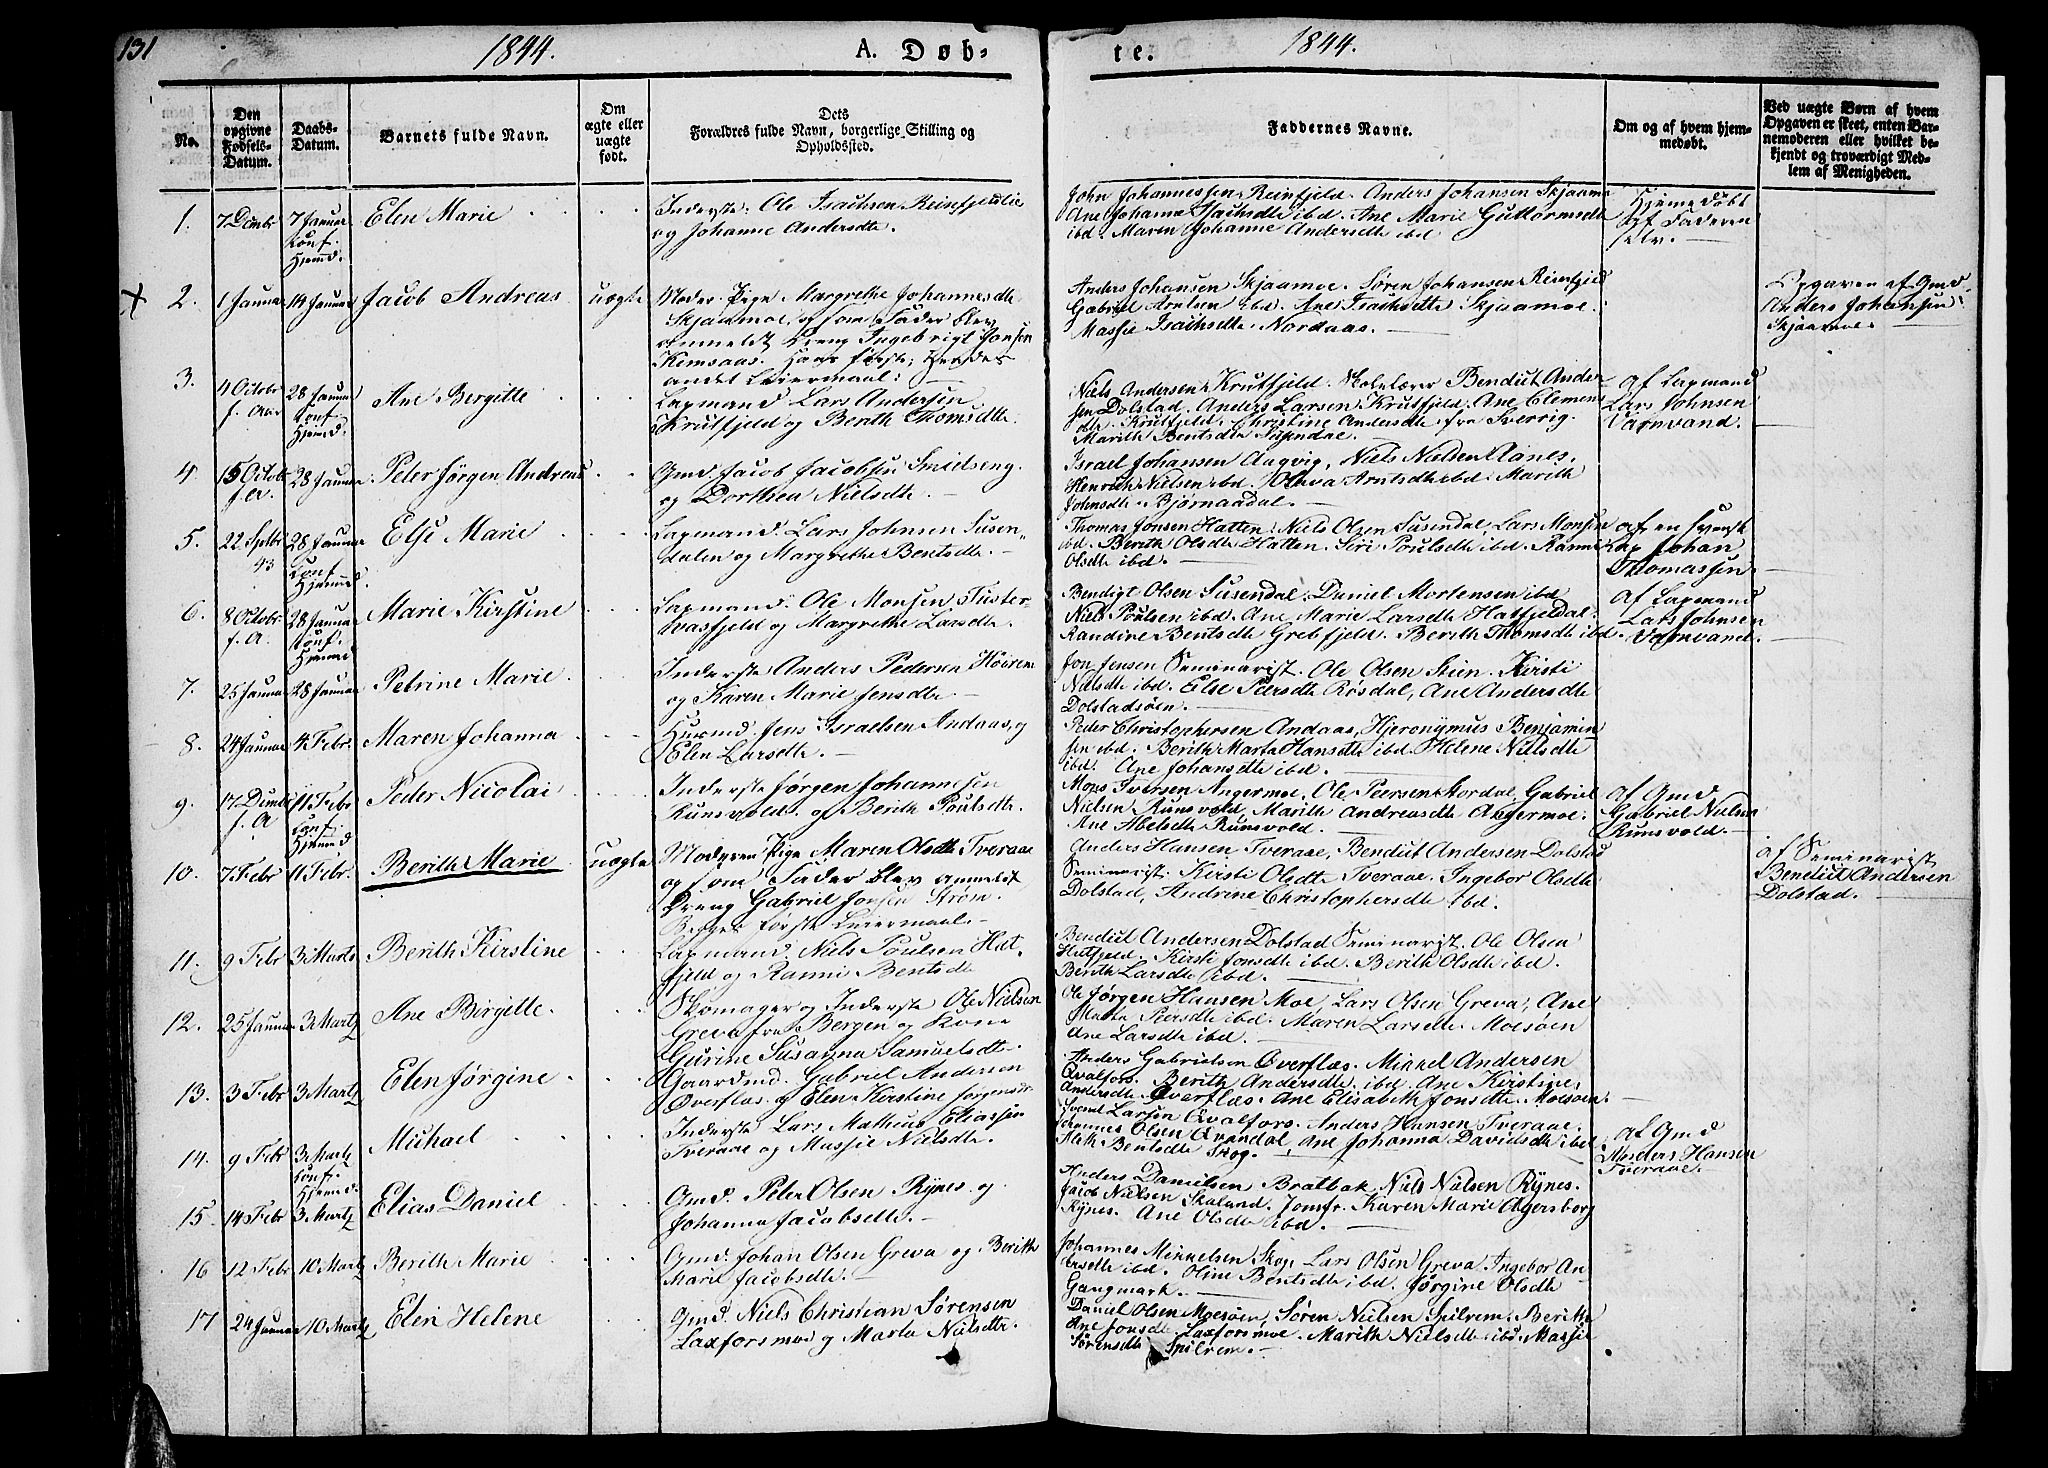 131
1844.
A. Døb-
te.
1844.
No.
Den
opgivne
Fødsels-
Datum.
Daabs-
Datum.
Barnets fulde Navn.
Om
ægte eller
uægte
født.
Dets
Forældres fulde Navn, borgerlige Stilling og
Opholdssted.
Faddernes Navne.
Om og af hvem hjem-
medøbt.
Ved uægte Børn af hvem
Opgaven er skeet, enten Bar-
nemoderen eller hvilket be-
kjendt og troværdigt Med-
lem af Menigheden.
1.
7 Dcmbr
7 Januar
Conf.
Hjemmd.
Elen Marie
Inderste: Ole Isachsen Reinfjeldlie
og Johanne Andersdtr.
John Johannessen Reinfjeld. Anders Johansen Skjaamo
Ane Johanna Isachsdtr ibd. Ane Marie Guttormsdtr
ibd. Maren Johanne Andersdtr ibd
Hjemedøbt
af Faderen
selv.
2.
1 Januar
14 Januar
Jacob Andreas
uægte
Moder: Pige Margrethe Johannesdtr
Skjaamoe, og som Fader blev
anmeldt Dreng Ingebrigt Jonsen
Kemsaas. Hans første; Hendes
andet Leiermaal:
Anders Johansen Skjaamoe. Søren Johansen Reinfjeld
Gabriel Arntsen ibd. Ane Isachsdtr Skjaamoe.
Massie Isachsdtr Nordaas.
Opgaven af Gmd
Anders Johansen
Skjaamoe.
3.
4 Octobr
f. Aar
28 Januar
Conf
Hjemd.
Ane Bergitte
Lapmand Lars Andersen
Krutfjeld og Berith Thomsdtr.
Niels Andersen Krutfjeld. Skolelærer Bendict Ander-
sen Dolstad. Anders Larsen Krutfjeld. Ane Clemens
dtr. Krutfjeld. Christine Andersdtr fra Sverrig.
Marith Bentsdtr Susendal.
af Lapmand
Lars Johnsen
Varnvand.
4.
15 Octobr
f. A.
28 Januar
Peter Jørgen Andreas
Gmd. Jacob Jacobsen Smidseng
og Dorthea Nielsdtr.
Israel Johansen Aagvig, Niels Nilsen Ranes,
Henrich Nielsen ibd. Oleva Arntsdtr ibd. Marith
Johnsdtr Bjørnaadal.
5.
22 Septbr
43
28 Januar
Conf
Hjemmd.
Else Marie
Lapmand. Lars Johnsen Susen-
dalen og Margrethe Bentsdtr.
Thomas Jonsen Hatten. Niels Olsen Susendal, Lars Monsen
ibd. Berith Olsdtr Hatten. Siri Poulsdtr ibd. Ranni
Olsdtr ibd.
af en svensk
Lap Johan
Thomassen
6.
8 Octobr
f. A.
28 Januar
Conf.
Hjemmd
Marie Kirstine
Lapmand. Ole Monsen Tuster-
vasfjeld og Margrethe Larsdtr.
Bendigt Olsen Susendal. Daniel Mortensen ibd
Niels Poulsen ibd. Ane Marie Larsdtr Hatfjeldal.
Randine Bentsdtr Grebfjeld. Berith Thomsdtr ibd.
af Lapmand
Lars Johnsen
Varnvand.
7.
25 Januar
28 Januar
Petrine Marie
Inderste Anders Pedersen Høirem
og Karen Marie Jensdtr.
Jon Jensen Seminarist. Ole Olsen Stien. Kirsti
Nielsdtr ibd. Else Peersdtr Røsdal, Ane Andersdtr
Dolstadsøen.
8.
24 Januar
4 Febr.
Maren Johanna
Huusmd. Jens Israelsen Andaas, og
Elen Larsdtr.
Peder Christophersen Andaas, Hjeronymus Benjamin
sen ibd. Berith Marta Hansdtr ibd. Helene Nielsdtr
ibd. Ane Johansdtr ibd.
9.
17 Dcmbr
f. A
11 Febr
Conf.
Hjemmd
Peder Nicolai
Inderste Jørgen Johannesen
Runsvold. og Berith Poulsdtr.
Mons Iversen Angermoe. Ole Peersen Mordal, Gabriel
Nielsen Runsvold, Marith Andreasdtr Angermoe.
Ane Abelsdtr Runsvold.
af Gmd
Gabriel Nielsen
Runsvold.
10.
7 Febr
11 Febr.
Berith Marie
uægte
Moderen Pige Maren Olsdtr Tveraae
og som Fader blev anmeldt
Dreng Gabriel Jonsen Strøm.
Begges første Leiermaal.
Anders Hansen Tveraae, Bendict Andersen Dolstad
Seminarist. Kirsti Olsdtr Tveraae. Ingebor Olsdtr
Dolstad, Andrine Christophersdtr ibd.
af Seminarist
Bendict Andersen
Dolstad.
11.
9 Febr
3 Marts
Berith Kirstine
Lapmand. Niels Poulsen Hat-
fjeld og Ranni Bentsdtr
Bendict Andersen Dolstad Seminarist. Ole Olsen
Hatfjeld. Kirsti Jonsdtr ibd. Berith Olsdtr ibd.
Berith Larsdtr ibd.
12.
25 Januar
3 Marts
Ane Birgitte.
Skomager og Inderste Ole Nielsen
Greva fra Bergen og Kone
Gurine Susanna Samuelsdtr.
Ole Jørgen Hansen Moe, Lars Olsen Greva, Ane
Marta Peersdtr ibd. Maren Larsdtr Moesøen
Ane Larsdtr ibd.
13.
3 Febr
3 Marts
Elen Jørgine
Gaardmd. Gabriel Andersen
Øverflæs. og Elen Kirstine Jørgensdtr
Anders Gabrielsen Øverflæs. Mikkel Andersen
Qvalfors. Berith Andersdtr ibd. Ane Kirstine
Andersdtr Øverflæs. Ane Elisabeth Jonsdtr Moesøen.
14.
9 Febr
3 Marts
Conf.
Hjemmd.
Michael
Inderste Lars Mathias Eliassen
Tveraae og Massie Nielsdtr.
Svend Larsen Qvalfors. Anders Hansen Tveraae.
Johannes Olsen Ørandal, Ane Johanna Davidsdtr ibd
Aleth Bentsdtr Skog.
af Gmd
Anders Hansen
Tveraae.
15.
14 Febr
3 Marts
Elias Daniel
Gmd. Peter Olsen Rynes og
Johanna Jacobsdtr.
Anders Danielsen Bratbak, Niels Nielsen Rynes.
Jacob Nielsen Skaland. Jomfr. Karen Marie Agersborg
Rynes. Ane Olsdtr ibd.
16
12 Febr
10 Marts
Berith Marie
Gmd. Johan Olsen Greva og Berith
Marie Jacobsdtr.
Johannes Mikkelsen Skog, Lars Olsen Greva, Ingebor An-
dersdtr ibd. Oline Bentsdtr ibd. Jørgine Olsdtr
Gangmark.
17
24 Januar
10 Marts
Elen Helene
Gmd. Niels Christian Sørensen
Laxforsmoe og Marta Nielsdtr.
Daniel Olsen Moesøen, Søren Nielsen Spilrem. Berith
Ane Jonsdtr Laxforsmoe. Marith Nielsdtr ibd. Massie
Sørensdtr Spilrem.